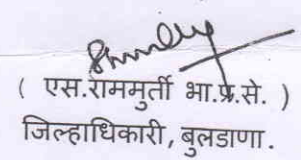 ( एस.राममुर्ती भा.प्र.से. )
जिल्हाधिकारी, बुलडाणा.